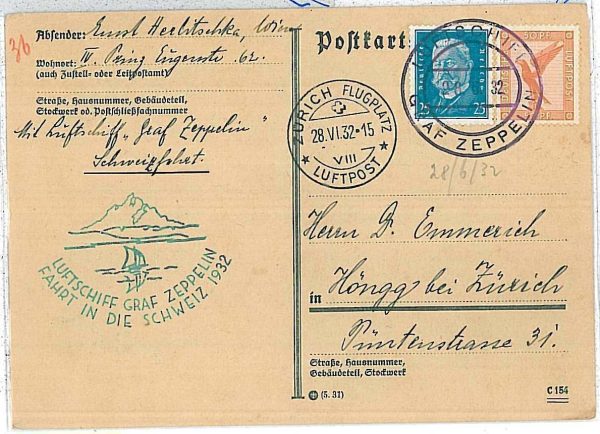 36
Absender: Ernst Herlitschka, Wien
Wohnort: IV. Prinz Eugenstr. 62.
(auch Zustell- oder Leitpostamt)
Straße, Hausnummer, Gebäudeteil,
Stockwerk od. Postschließfachnummer
Mit Luftschiff „Graf Zeppelin"
Schweizfahrt.
LUFTSCHIFF GRAF ZEPPELIN
FAHRT IN DIE SCHWEIZ 1932
Postkart
Deutsches Reich
25 25
50 PF
LUFTPOST
32
GRAF ZEPPELIN
ZÜRICH FLUGPLATZ
28.VI.32-15
VIII
LUFTPOST
28/6/32
Herrn D. Emmerich
in Höngg bei Zürich
Püntenstrasse 31.
Straße, Hausnummer,
Gebäudeteil, Stockwerk
(5. 31)
C 154